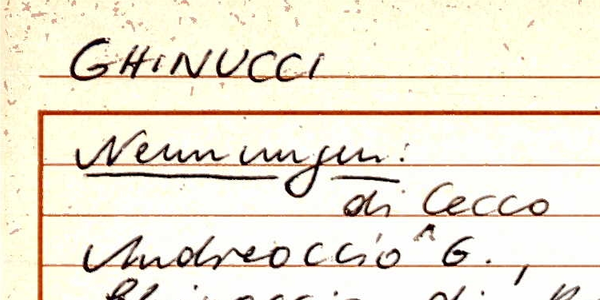 GHINUCCI
Nennungen:
di Cecco
Andreoccio ^ G.,
di